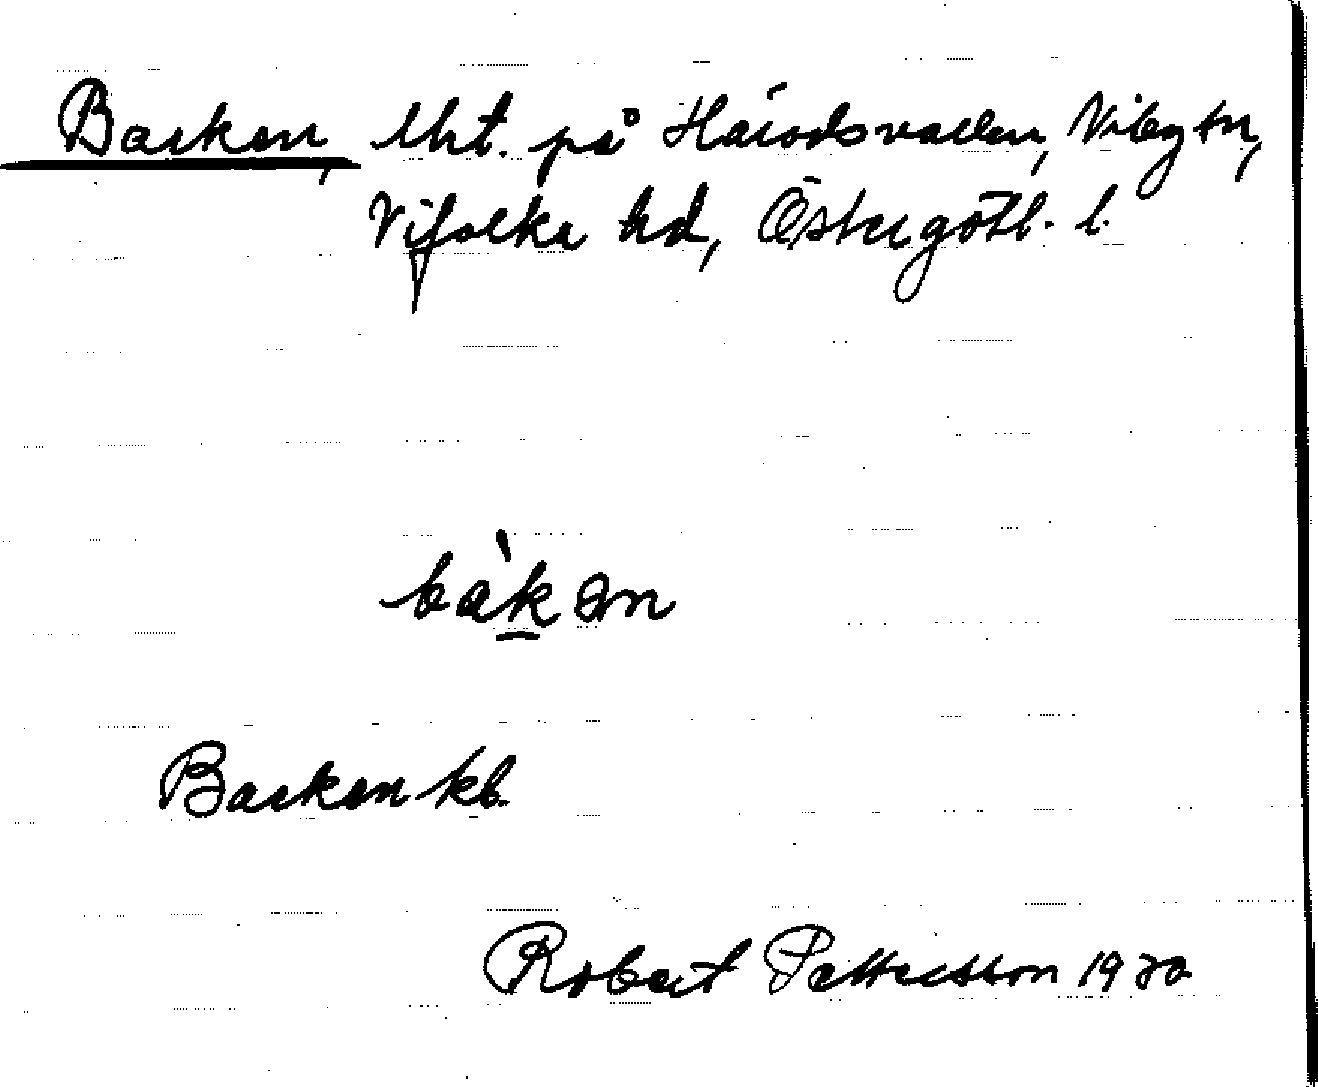 Backen, lht. på Häradsvallen, Viby sn,
Vifolka hd, Östergötl. l.
bàk ən
Backen kb.
Robert Pettersson 1920